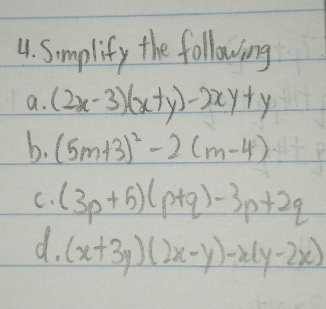 4. Simplify the following
a. (2x-3)(x+y)-2xy+y
b. (5m+3)² - 2(m-4)
c. (3p+5)(p+q)-3p+2q
d. (x+3y)(2x-y)-x(y-2x)